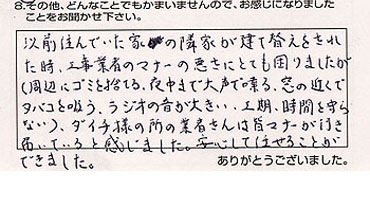 8.その他、どんなことでもかまいませんので、お感じになりました
ことをお聞かせ下さい。
以前住んでいた家の隣家が建て替えをされ
た時、工事業者のマナーの悪さにとても困りましたが
(周辺にゴミを捨てる、夜中まで大声で喋る、窓の近くで
タバコを吸う、ラジオの音が大きい、工期、時間を守ら
ない)、ダイチ様の所の業者さんは皆マナーが行き
届いていると感じました。安心して任せることが
できました。
ありがとうございました。